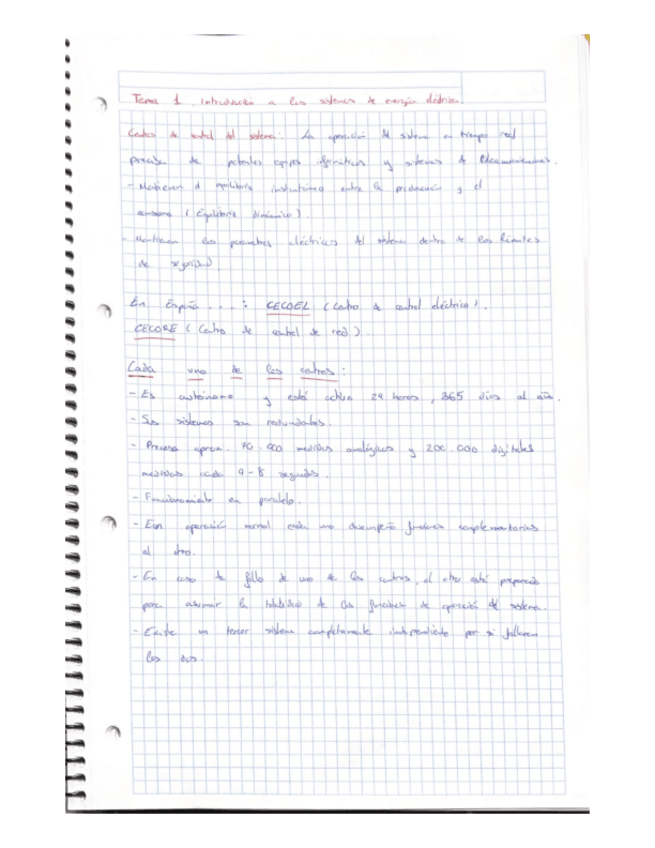 Tema 1. Introducción a los sistemas de energía eléctrica.
Centros de control del sistema: La operación del sistema en tiempo real
precisa de potentes equipos informáticos y sistemas de telecomunicaciones.
- Mantienen el equilibrio instantáneo entre la producción y el
consumo (Equilibrio dinámico).
- Mantienen los parámetros eléctricos del sistema dentro de los límites
de seguridad.
En España ...: CECOEL (Centro de control eléctrico).
CECORE (Centro de control de red).
Cada uno de los centros:
- Es autónomo y está activo 24 horas, 365 días al año.
- Sus sistemas son redundantes.
- Procesa aprox. 70.000 medidas analógicas y 200.000 digitales
medidas cada 4-8 segundos.
- Funcionamiento en paralelo.
- operación normal cada uno desempeña funciones complementarias
al otro.
- En caso de fallo de uno de los centros, el otro está preparado
para asumir la totalidad de las funciones de operación del sistema.
- Existe un tercer sistema completamente independiente por si fallaran
los dos.